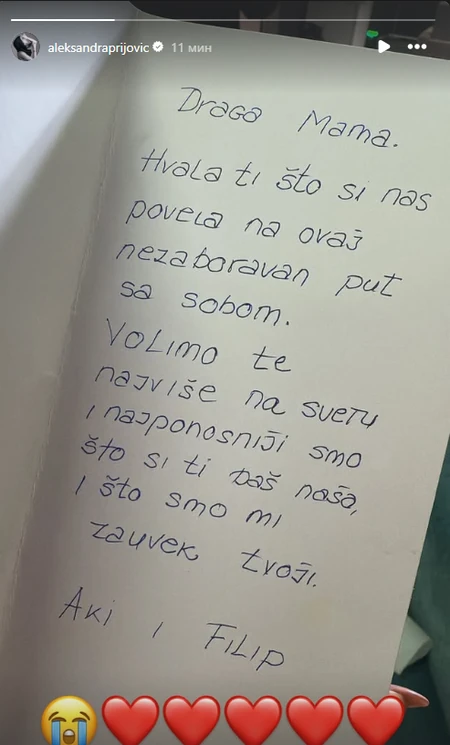 aleksandraprijovic 11 мин
Draga Mama.
Hvala ti što si nas
povela na ovaj
nezaboravan put
sa sobom.
Volimo te
najviše na svetu
i najponosniji smo
što si ti baš naša,
i što smo mi
zauvek tvoji.
Aki i Filip